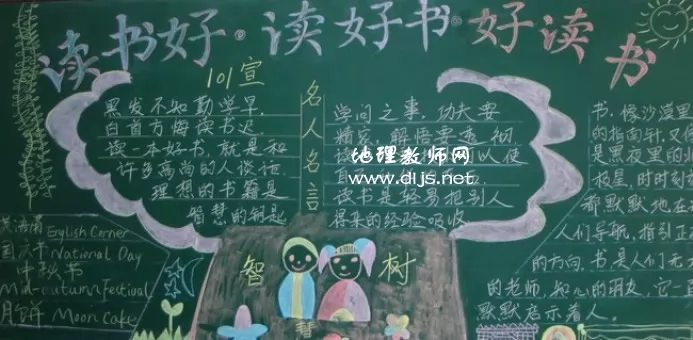 读书好·读好书·好读书
101宣
黑发不知勤学早,
白首方悔读书迟.
读一本好书,就是和
许多高尚的人谈话.
理想的书籍是
智慧的钥匙
名人名言
学问之事,功夫要
精密,解悟要透彻
以使
读书是轻易把别人
得来的经验吸收
书,像沙漠里
的指向针,又
是黑夜里的北
极星,时时刻
都默默地在
人们导航,指引正
的方向.书是人们无
的老师,知心的朋友,它一直
默默启示着人.
英语角 English Corner
国庆节 National Day
中秋节
Mid-autumn festival
月饼 Moon Cake
智
树
慧
地理教师网
www.dljs.net